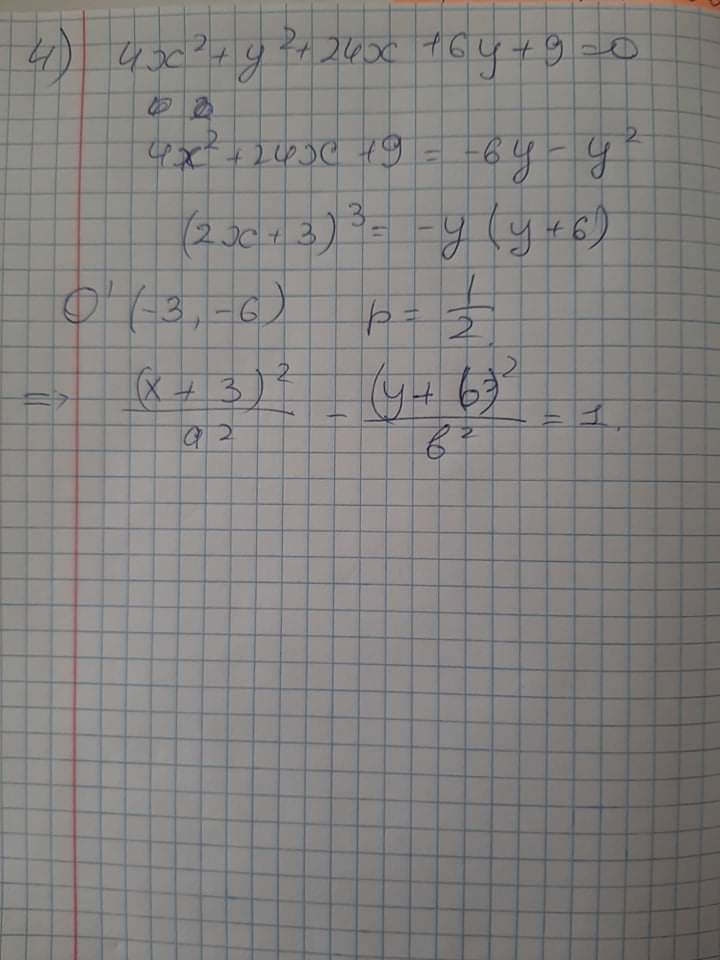 4) 4x² + y² + 24x + 6y + 9 = 0
4x² + 24x + 9 = -6y - y²
(2x + 3)³ = -y (y + 6)
O' (-3, -6) p = 1/2
=> (x + 3)²/a² - (y + 6)²/b² = 1.